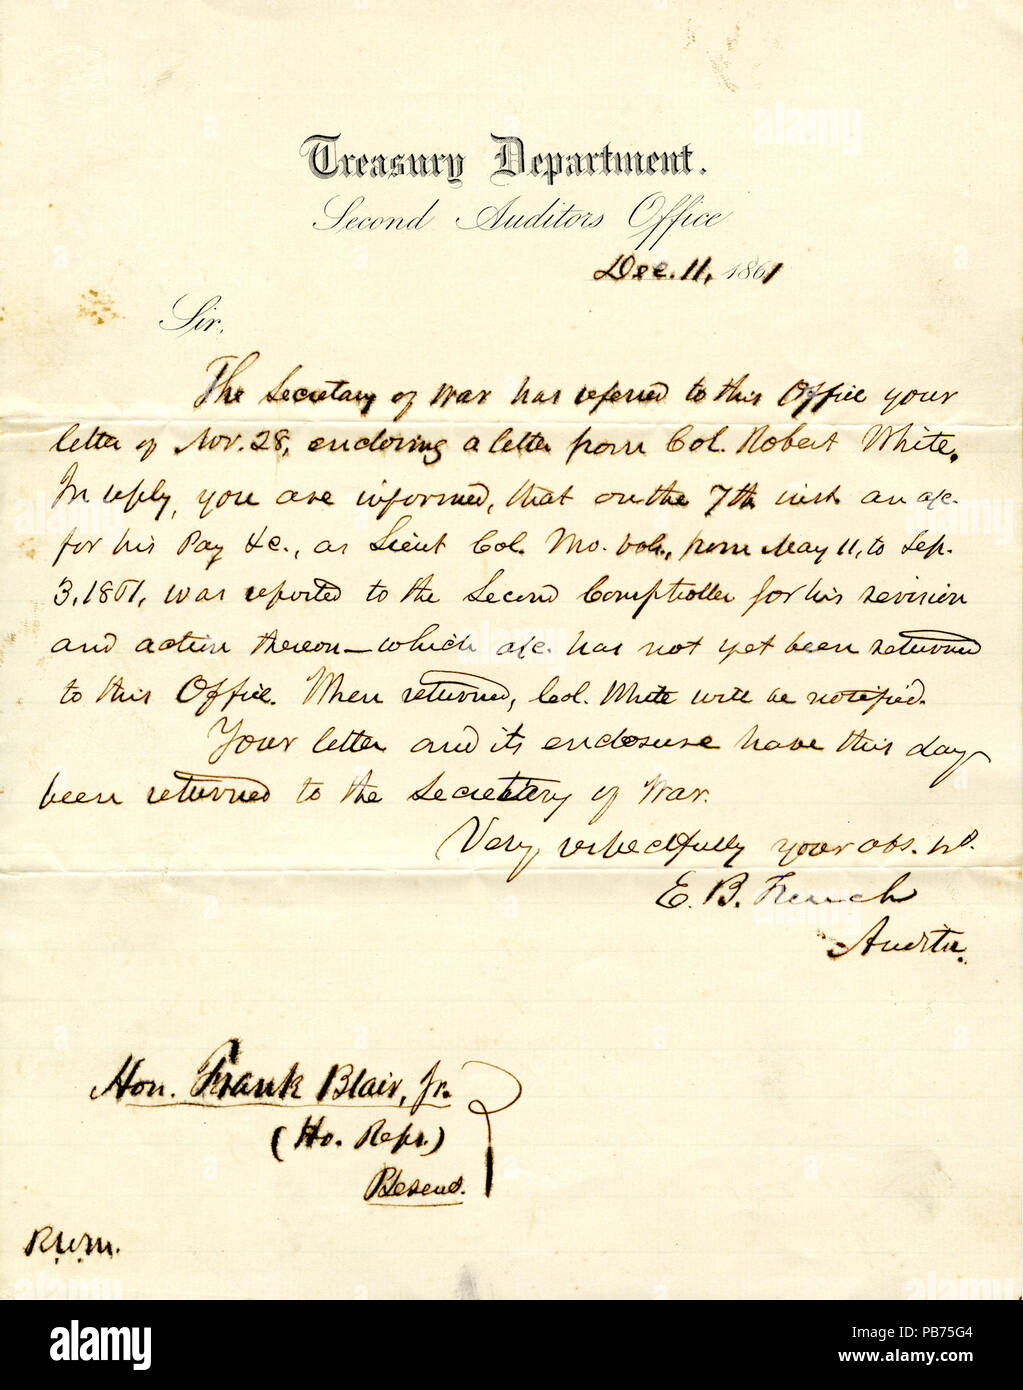 Treasury Department.
Second Auditors Office
Dec. 11, 1861
Sir,
The Secretary of War has referred to this Office your
letter of Nov. 28, enclosing a letter from Col. Robert White.
In reply, you are informed, that on the 7th inst. an a/c.
for his Pay &c., as Lieut Col. Mo. vols., from May 11, to Sep.
3, 1861, was reported to the Second Comptroller for his revision
and action thereon — which a/c. has not yet been returned
to this Office. When returned, Col. White will be notified.
Your letter and its enclosure have this day
been returned to the Secretary of War.
Very respectfully your obs. st.
E. B. French
Auditor.
Hon. Frank Blair, Jr.
(Ho. Repr.)
Present.
alamy
Image ID: PB75G4
www.alamy.com